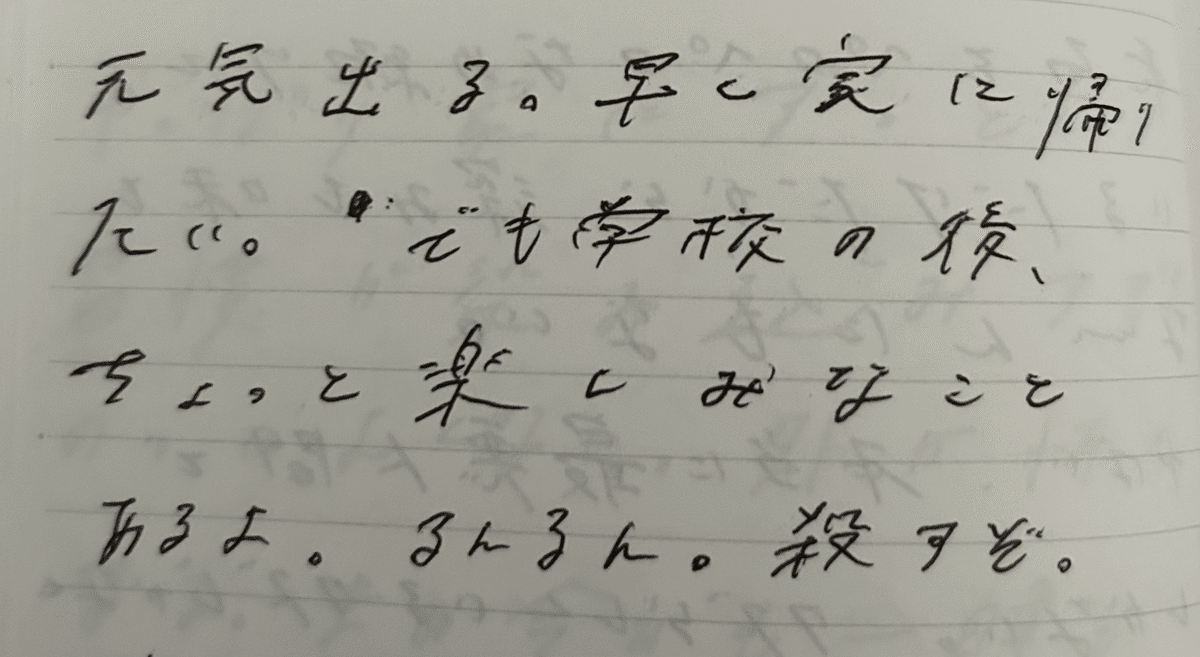 元気出る。早く家に帰り
たい。でも学校の後、
ちょっと楽しみなこと
あるよ。るんるん。殺すぞ。